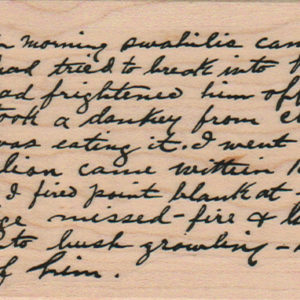 morning swahilis cam
had tried to break into
ad frightened him of
took a dankey from
was eating it. I went
lion came within
I fired point blank at
missed-fire &
to bush growling -
of him.